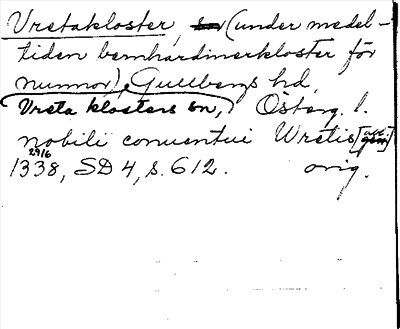 Vretakloster, (under medel-
tiden bernhardinerkloster för
nunnor), Gullbergs hd,
Vreta klosters sn, Österg. l.
nobili conuentui Wretis [abl.
29/6
1338, SD 4, s. 612. orig.